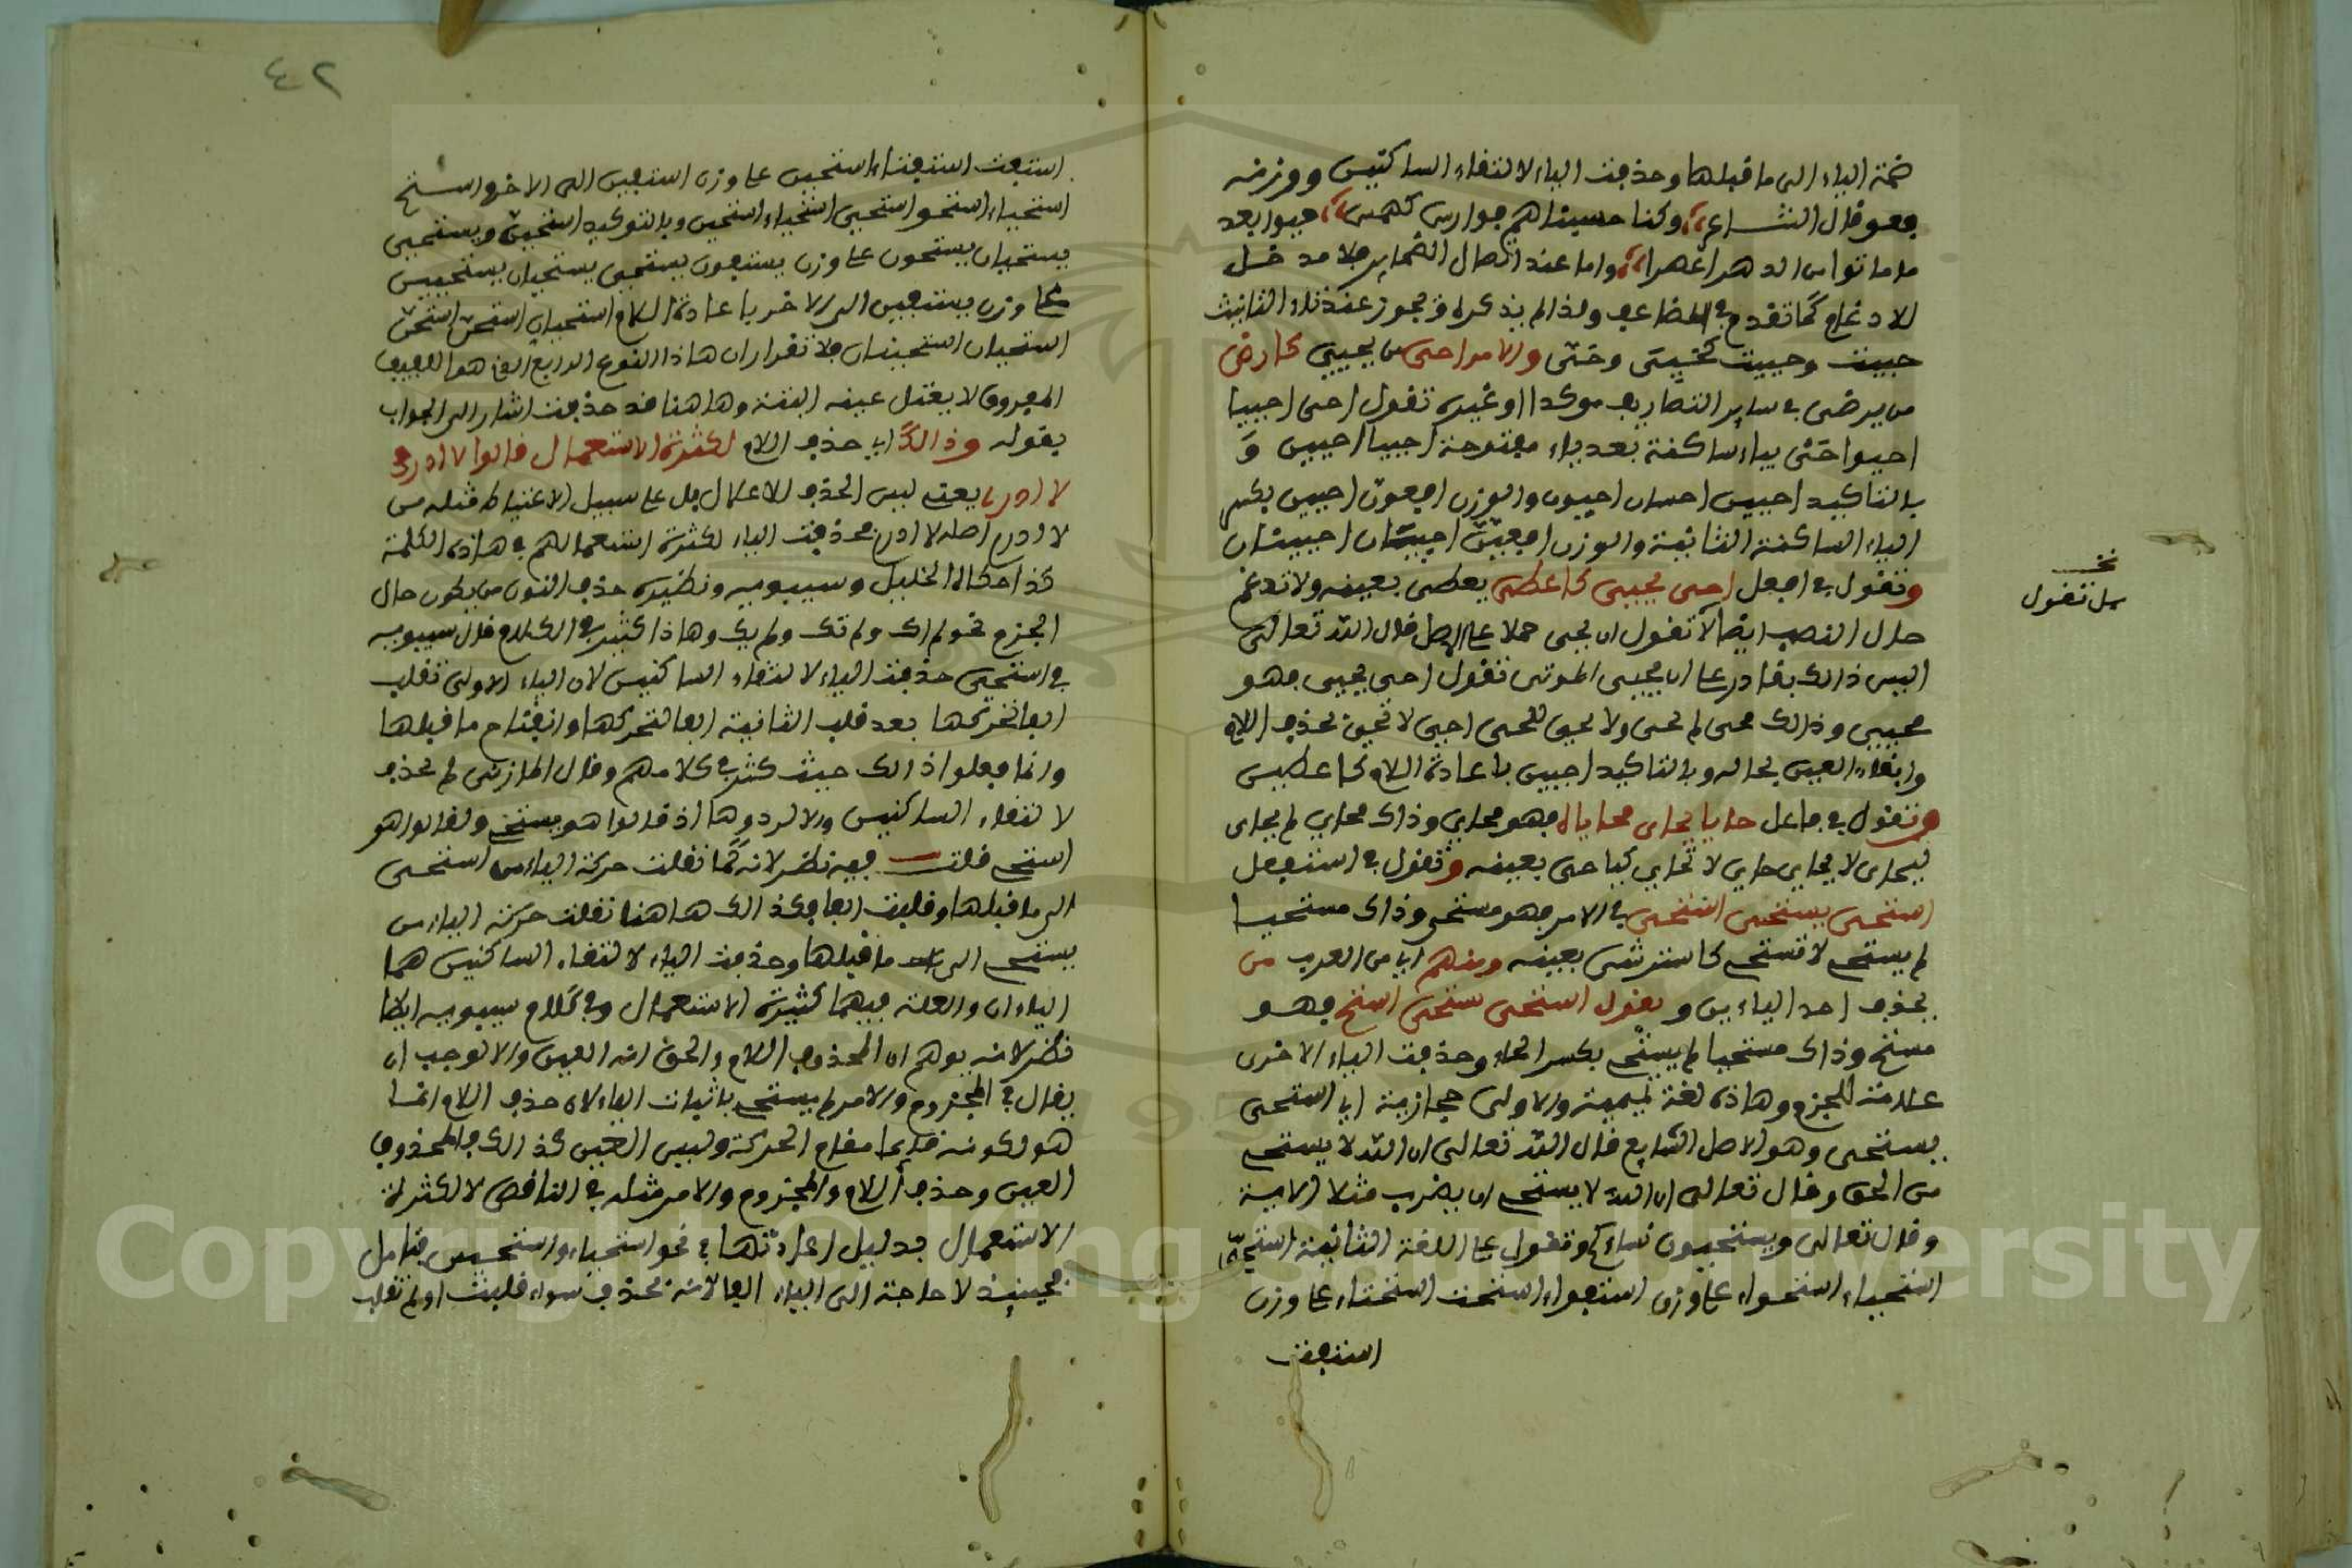 ضمة الياء الى ما قبلها وحذفت الياء لالتقاء الساكنين ووزنه
فعو قال الشاعر وكنا حسبناهم فوارس كهمس حيوا بعد
ما ماتوا من الدهر اعصرا واما عند اتصال الضماير فلا مدخل
للادغام كما تقدم في المضاعف ولذا لم يذكره ويجوز عند تاء التانيث
حييت وحييت كحييتى وحتى والامر احى من يحيى كارض
من يرضى في ساير التصاريف موكدا او غيره تقول احى احييا
احيوا احى بياء ساكنة بعد ياء مفتوحة احييا احيين و
بالتاكيد احيين احييان احيون والوزن افعون احيين بكسر
الياء الساكنة الثانية والوزن افعين احييان احيينان
وتقول في افعل احيى يحيى كاعطى يعطى بعينه ولا تدغم
حال النصب ايضا لا تقول ان يحى حملا على الاصل قال الله تعالى
اليس ذالك بقادر على ان يحيى الموتى تقول احيى يحيى فهو
محيى وذالك محيى لم يحى ولا يحيى ليحى احى لا تحى بحذف اللام
وابقاء العين بحاله وبالتاكيد احيين باعادة اللام كاعطين
وتقول في فاعل حايا يحاى محاياة فهو محاي وذاك محاي لم يحاى
ليحاى لا يحاي حاي لا تحاي كناجى بعينه وتقول في استفعل
استحيى يستحيى استحيى في الامر فهو مستحى وذاك مستحيا
لم يستحى لا تستحى كاسترشى بعينه ومنهم اي من العرب من
يحذف احد الياءين ويقول استحى يستحى استح فهو
مستح وذاك مستحيا لم يستح بكسر الحاء وحذفت الياء الاخرى
علامة للجزم وهاذه لغة تميمية والاولى حجازية اي استحيى
يستحيى وهو الاصل الشايع قال الله تعالى ان الله لا يستحى
من الحق وقال تعالى ان الله لا يستحى ان يضرب مثلا الاية
وقال تعالى ويستحيون نساءكم وتقول على اللغة الثانية استحى
استحياء استحوا على وزن استفوا استحت استحتا على وزن
استفت
نخـ
بل تقول
٤٢
استفت استفتا استحين على وزن استفين الى الاخر استح
استحياء استحوا استحى استحياء استحين وبالتوكيد استحين ويستحى
يستحيان يستحون على وزن يستفون يستحى يستحيان يستحيين
على وزن يستفين الى الاخر باعادة اللام استحيان استحن استحن
استحيان استحينان فلا تقرار ان هاذا النوع الرابع الذي هو اللفيف
المفروق لا يعتل عينه البتة وهاهنا قد حذفت اشار الى الجواب
بقوله وذالك اي حذف اللام لكثرة الاستعمال قالوا لا ادر في
لا ادرى يعنى ليس الحذف للاعلال بل على سبيل الاعتباط مثله من
لا ادر اصله لا ادرى فحذفت الياء لكثرة استعمالهم في هاذه الكلمة
كذا حكاه الخليل وسيبويه ونظيره حذف النون من يكون حال
الجزم نحو لم اك ولم تك ولم يك وهاذا كثير في الكلام قال سيبويه
في استحى حذفت الياء لالتقاء الساكنين لان الياء الاولى تقلب
الفا لتحركها بعد قلب الثانية الفا لتحركها وانفتاح ما قبلها
وانما فعلوا ذالك حيث كثر في كلامهم وقال المازني لم يحذف
لالتقاء الساكنين والا لردوها اذ قالوا هو يستحى ولقالوا هو
استحى قلت فيه نظر لانه كما نقلت حركة الياء من استحيى
الى ما قبلها وقلبت الفا فكذالك هاهنا نقلت حركة الياء من
يستحى الى ما قبلها وحذفت الياء لالتقاء الساكنين هما
الياءان والعلة فيهما كثيرة الاستعمال وفي كلام سيبويه ايضا
نظر لانه يوهم ان المحذوف اللام والحق انه العين والا لوجب ان
يقال في المجزوم والامر لم يستحى باثبات الياء لان حذف اللام انما
هو لكونه قايما مقام الحركة وليس العين كذالك فالمحذوف
العين وحذف اللام والمجزوم والامر مثله في الناقص لا لكثرة
الاستعمال بدليل اعادتها في نحو استحياء واستحين فتامل
فحينيذ لا حاجة الى الياء الفا لانه تحذف سواء قلبت او لم تقلب